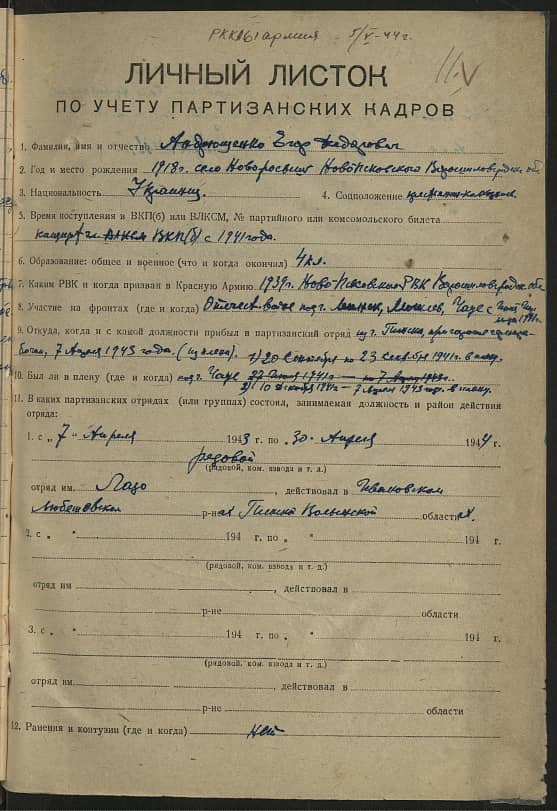 РККА 61 армия 5/V-44г.
11.V
ЛИЧНЫЙ ЛИСТОК
ПО УЧЕТУ ПАРТИЗАНСКИХ КАДРОВ
1. Фамилия, имя и отчество Андрющенко Егор Федорович
2. Год и место рождения 1918г. село Новоросошь Новопсковского Ворошиловградск. обл
3. Национальность Украинец 4. Соцположение
5. Время поступления в ВКП(б) или ВЛКСМ, № партийного или комсомольского билета
ВКП(б) с 1941 года.
6. Образование: общее и военное (что и когда окончил) 4 кл.
7. Каким РВК и когда призван в Красную Армию 1939г. Ново-Псковской РВК Ворошиловградск. обл
8. Участие на фронтах (где и когда) Отечест. война под г. Минск, Могилев, Чаус с
9. Откуда, как и с какой должности прибыл в партизанский отряд из г. Пинска,
7 Апреля 1943 года. (из плена). 1) 20 Сентября по 23 Сентября 1941г. в плену.
10. Был ли в плену (где и когда) под г. Чаус
2) 10 Декабря 1941г - 7 Апреля 1943 год. в плену.
11. В каких партизанских отрядах (или группах) состоял, занимаемая должность и район действия
отряда:
1. с „ 7 “ Апреля 1943 г. по „ 30 “ Апреля 1944 г.
рядовой
(рядовой, ком. взвода и т. д.)
отряд им. Лазо, действовал в Ивановском
Любешовском р-нах Пинской Волынской областях.
2. с „ “ 194 г. по „ “ 194 г.
(рядовой, ком. взвода и т. д.)
отряд им , действовал в
р-не области
3. с „ “ 194 г. по „ “ 194 г.
(рядовой, ком. взвода и т. д.)
отряд им. , действовал в
р-не области
12. Ранения и контузии (где и когда) нет